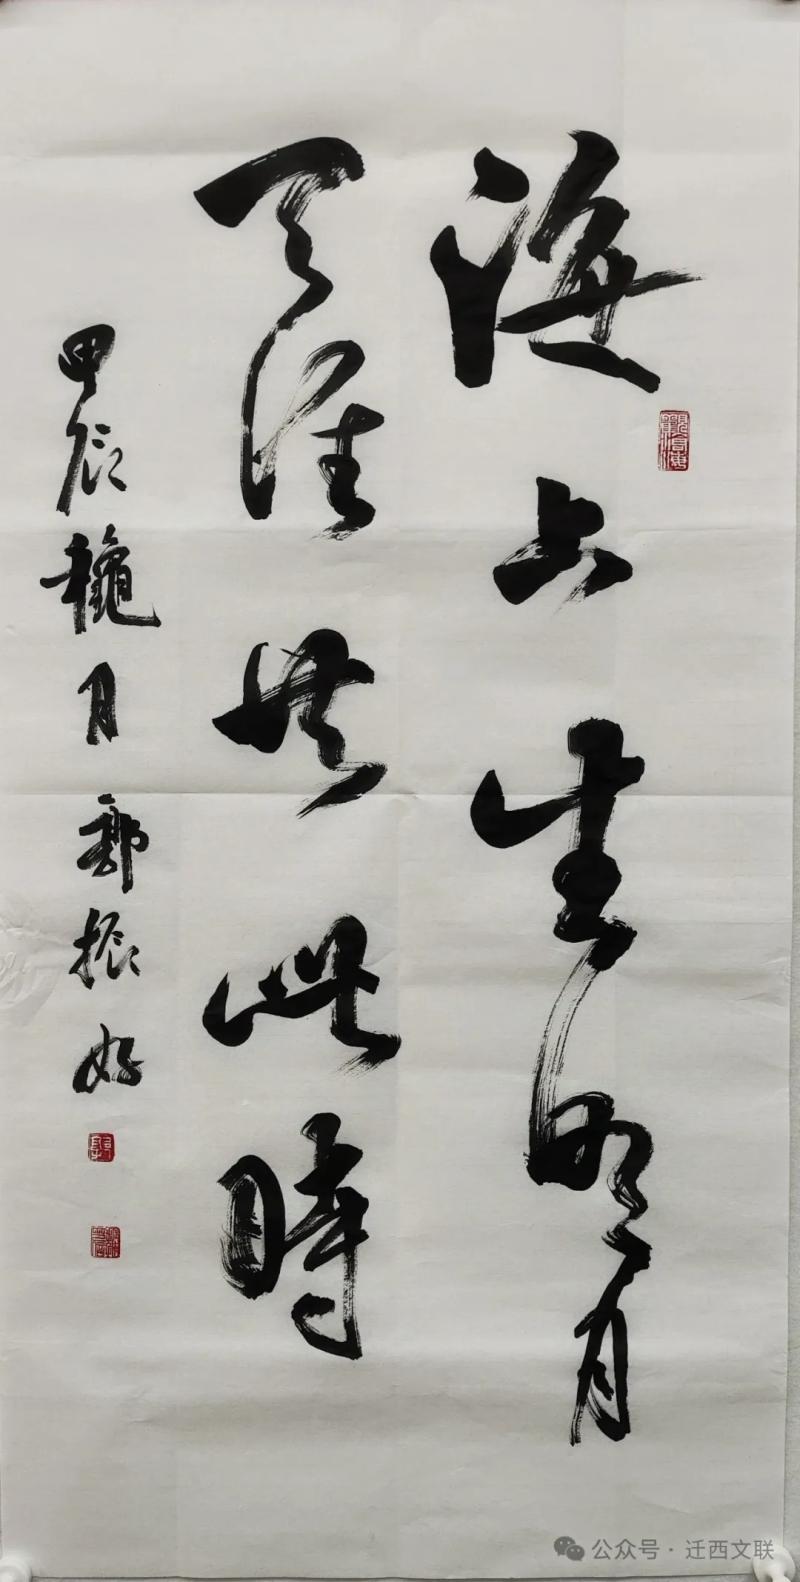 海上生明月
天涯共此時
甲辰穐月 郭振好
公众号 · 迁西文联